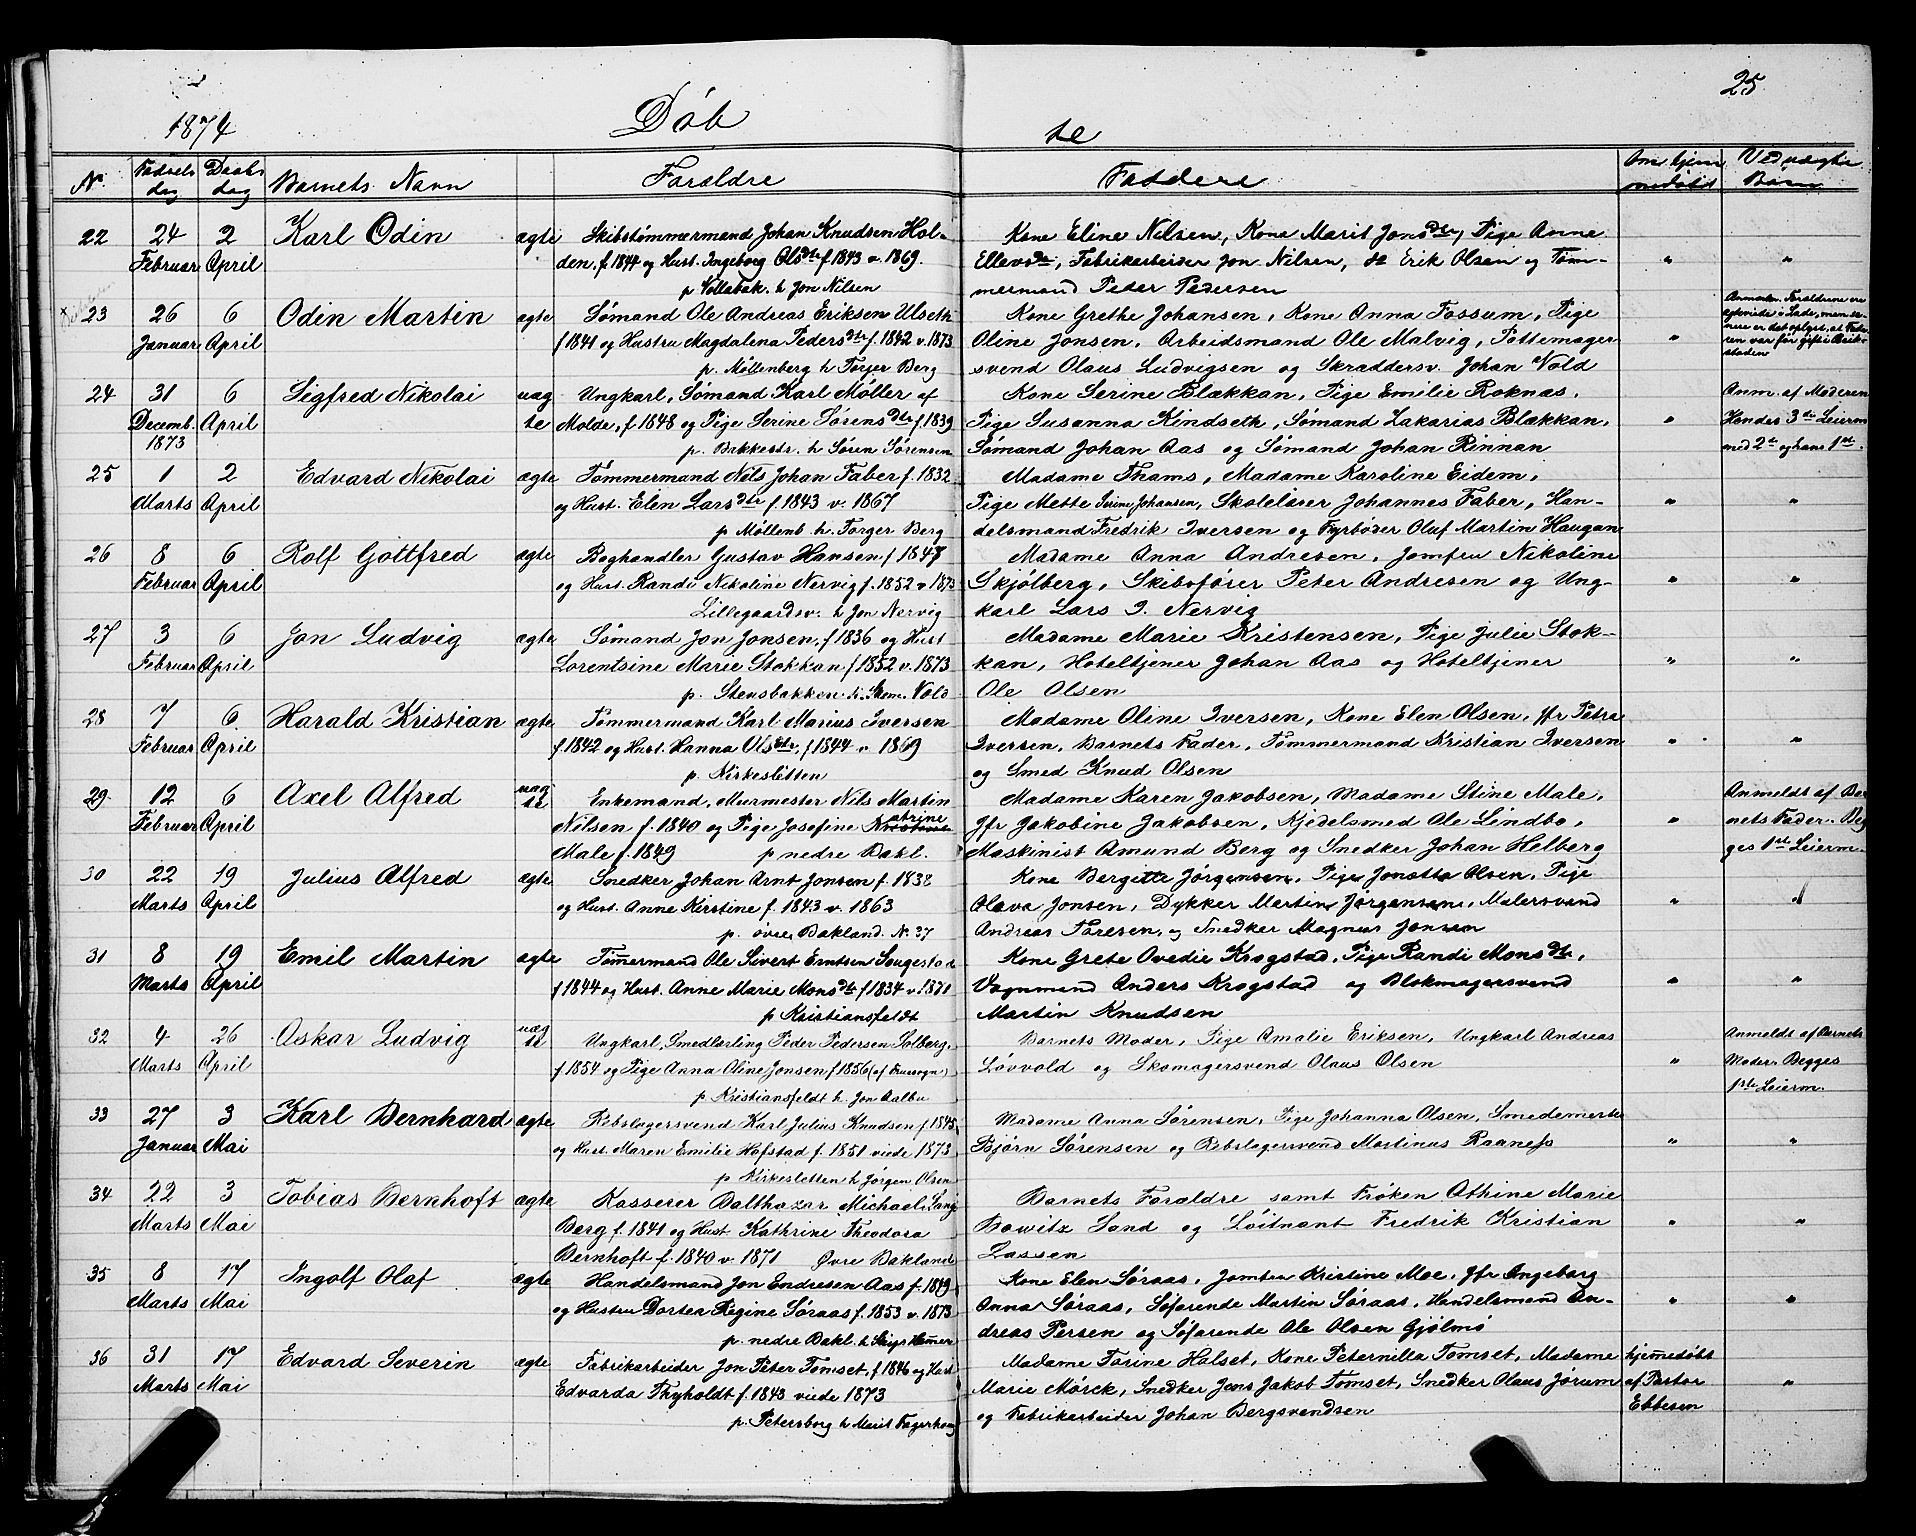 25
1874 Döb te
No. Fødsels dag Daabs dag Barnets Navn Forældre Faddere Om hjem medøbt Ved uægte Børn
22 24 Februar 2 April Karl Odin ægte
Skibstømmermand Johan Knudsen Hol-
den, f. 1844 og Hust. Ingeborg Olsdtr f. 1843 v. 1869.
p Vollabak. h Jon Nilsen
Kone Eline Nilsen, Kone Marit Jonsdtr, Pige Anne
Ellevsdtr, Fabrikarbeider Jon Nilsen, do Erik Olsen og Töm-
mermand Peder Pedersen
" "
23 26 Januar 6 April Odin Martin ægte
Sømand Ole Andreas Eriksen Ulseth
f 1841 og Hustru Magdalena Pedersdtr f. 1842 v. 1873
p. Möllenberg h Torger Berg
Kone Grethe Johansen, Kone Anna Fossum, Pige
Oline Jonsen, Arbeidsmand Ole Malvig, Pottemager-
svend Olaus Ludvigsen og Skraddersv. Johan Vold
"
Forældrene ere
ægteviede i Lade, men se-
nere er det oplyst, at Fade-
ren var før gift i
24 31 Decemb. 1873 6 April Sigfred Nikolai uæg te
Ungkarl, Sømand Karl Møller af
Molde, f. 1848 og Pige Serine Sørensdtr f. 1839
p. Bakkestr. h Søren Sørensen
Kone Serine Blækkan, Pige Emilie Roknæs,
Pige Susanna Kindseth, Sømand Zakarias Blækkan,
Sømand Johan Aas og Sømand Johan Rinnan
"
Anm. af Moderen
Hendes 3die Leierm
med 2de og hans 1ste.
25 1 Marts 2 April Edvard Nikolai ægte
Tömmermand Nils Johan Faber f. 1832
og Hust. Elen Larsdtr f. 1843 v. 1867
p Möllenb. h. Torger Berg
Madame Thams, Madame Karoline Eidem,
Pige Mette Ivine Johansen, Skolelærer Johannes Faber, Han-
delsmand Fredrik Iversen og Fyrbøder Oluf Martin Haugan
" "
26 8 Februar 6 April Rolf Gottfred ægte
Boghandler Gustav Hansen f 1847
og Hust. Randi Nikoline Nervig f. 1852 v 1873
Lillegaardsv. h Jon Nervig
Madame Anna Andresen, Jomfru Nikoline
Skjölberg, Skibsfører Peter Andresen og Ung-
karl Lars J. Nervig
" "
27 3 Februar 6 April Jon Ludvig ægte
Sømand Jon Jonsen, f 1836 og Hust
Lorentsine Marie Stokkan f. 1852 v. 1873
p. Stensbakken h. Vold
Madame Marie Kristensen, Pige Julie Stok-
kan, Hoteltjener Johan Aas og Hoteltjener
Ole Olsen
" "
28 7 Februar 6 April Harald Kristian ægte
Tømmermand Karl Marius Iversen
f. 1842 og Hust. Hanna Olsdtr, f 1844 v. 1869
p. Kirkesletten
Madame Oline Iversen, Kone Elen Olsen, Jfr Petra
Iversen, Barnets Fader, Tömmermand Kristian Iversen
og Smed Knud Olsen
" "
29. 12 Februar 6 April Axel Alfred uæg te
Enkemand, Murmester Nils Martin
Nilsen f. 1840 og Pige Josefine Katrine
Male f. 1849 p nedre Bakl.
Madame Karen Jakobsen, Madame Stine Male,
Jfr Jakobine Jakobsen, Kjedelsmed Ole Lindbo,
Maskinist Amund Berg og Snedker Johan Helberg
"
Anmeldt af Bar
nets Fader. Beg
ges 1ste Leierm.
30 22 Marts 19 April Julius Alfred ægte
Snedker Johan Arnt Jonsen f. 1838
og Hust. Anne Kirstine f. 1843 v. 1863
p. øvre Bakland. No. 37
Kone Bergitte Jörgensen, Pige Jonetta Olsen, Pige
Olava Jonsen, Dykker Martin Jörgensen, Malersvend
Andreas Toresen, og Snedker Magnus Jonsen
" "
31 8 Marts 19 April Emil Martin ægte
Tömermand Ole Sivert Erntsen Saugestad
f 1844 og Hust. Anne Marie Monsdtr f 1834 v. 1871
p Kristiansfeldt
Kone Grete Ovedie Krogstad, Pige Randi Monsdtr,
Vognmand Anders Krogstad og Blokmagersvend
Martin Knudsen
" "
32 4 Marts 26 April Oskar Ludvig uæg te
Ungkarl, Smedlærling Peder Pedersen Solberg,
f 1854 og Pige Anna Oline Jonsen f 1856 (af Fruesogn)
p Kristiansfeldt h. Jon Aalbu
Barnets Moder, Pige Amalie Eriksen, Ungkarl Andreas
Lövvold og Skomagersvend Olaus Olsen
"
Anmeldt af Barnets
Moder. Begges
1ste Leierm.
33 27 Januar 3 Mai Karl Bernhard ægte
Rebslagersvend Karl Julius Knudsen f 1845
og Hust. Maren Emilie Hofstad f. 1851 viede 1873
p Kirkesletten h Jörgen Olsen
Madame Anna Sørensen, Pige Johanna Olsen, Smedemester
Bjørn Sørensen og Rebslagersvend Martinus Raaness
" "
34 22 Marts 3 Mai Tobias Bernhoft ægte
Kasserer Balthazar Michael Lange
Berg f. 1841 og Hust. Kathrine Theodora
Bernhoft f. 1840 v. 1871 Øvre Bakland
Barnets Forældre samt Frøken Athine Marie
Bowitz Sand og Löitnant Fredrik Kristian
Lassen
" "
35 8 Marts 17 Mai Ingolf Olaf ægte
Handelsmand Jon Endresen Aas f. 1849
og Hustru Dortea Regine Söraas f. 1853 v. 1873
p. nedre Bakl. h
Kone Elen Söraas, Jomfru Kristine Moe, Jfr Ingeborg
Anna Söraas, Söfarende Martin Söraas, Handelsmand An-
dreas Persen og Söfarende Ole Olsen Gjölmö
" "
36 31 Marts 17 Mai Edvard Severin ægte
Fabrikarbeider Jon Peter Tomset, f. 1846 og Hust
Edvarda Thyholdt f. 1843 viede 1873
p. Petersborg h Marit Fagerhaug
Madame Torine Halset, Kone Peternilla Tomset, Madame
Marie Mörck, Snedker Jens Jakob Tomset, Snedker Olaus Jörum
og Fabrikarbeider Johan Bergsvendsen
hjemedöbt
af Pastor
Ebbesen
"